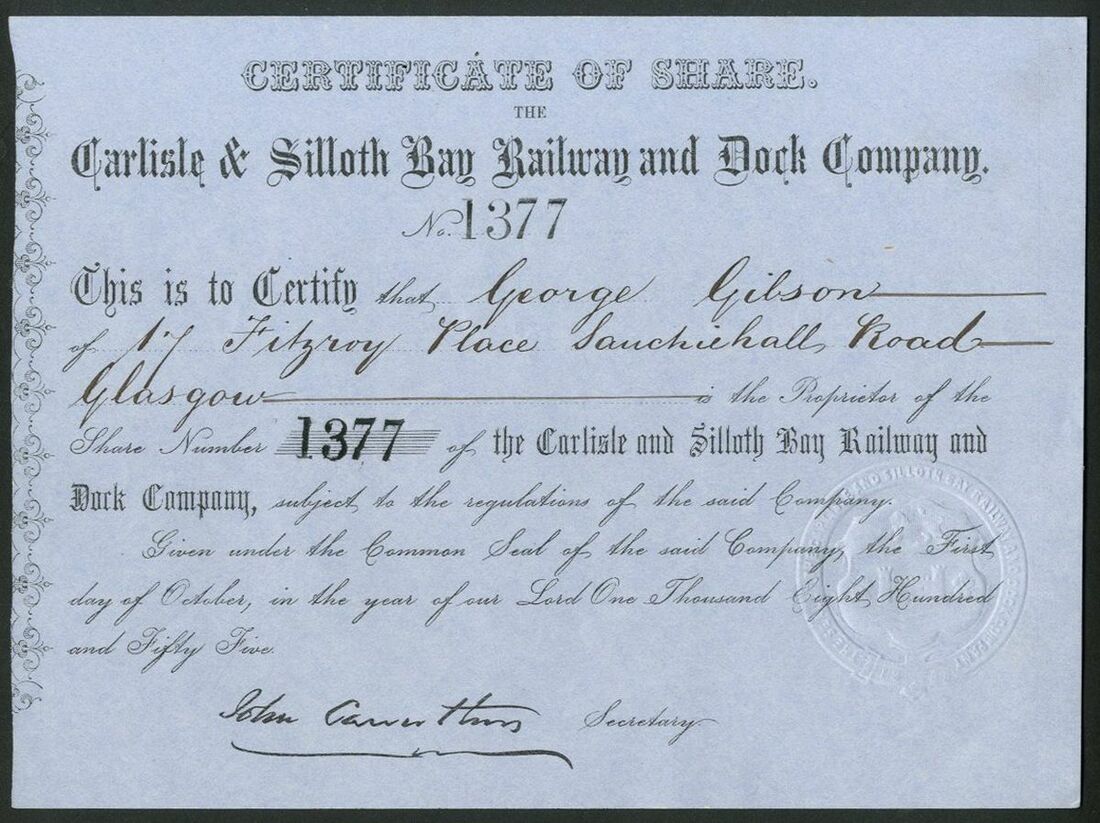 CERTIFICATE OF SHARE.
THE
Carlisle & Silloth Bay Railway and Dock Company.
No. 1377
This is to Certify that George Gibson
of 17 Fitzroy Place Sauchiehall Road
Glasgow is the Proprietor of the
Share Number 1377 of the Carlisle and Silloth Bay Railway and
Dock Company, subject to the regulations of the said Company.
Given under the Common Seal of the said Company, the First
day of October, in the year of our Lord One Thousand Eight Hundred
and Fifty Five.
John Carruthers Secretary
AND SILLOTH BAY RAILWAY AND DOCK COMPANY